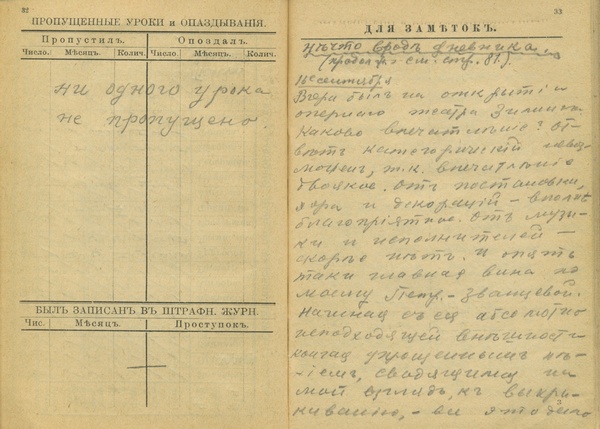 32
ПРОПУЩЕННЫЕ УРОКИ и ОПАЗДЫВАНІЯ.
Пропустилъ. Опоздалъ.
Число. Мѣсяцъ. Колич. Число. Мѣсяцъ. Колич.
ни одного урока
не пропущено.
БЫЛЪ ЗАПИСАНЪ ВЪ ШТРАФН. ЖУРН.
Чис. Мѣсяцъ. Проступокъ.
33
ДЛЯ ЗАМѢТОКЪ.
Нѣчто вродѣ дневника
см. стр. 81.).
сентября
Вчера былъ на открытіи
опернаго театра Зимина.
Каково впечатлѣніе? От-
вѣтъ категорическій невоз-
моженъ, т.к. впечатлѣніе
двоякое. Отъ постановки,
хора и декорацій – вполнѣ
благопріятное. Отъ музы-
ки и исполнителей –
скорѣе нѣтъ. И опять
таки главная вина по
моему Петр. - Званцевой.
Начиная съ ея абсолютно
неподходящей внѣшности
кончая упрощеннымъ пѣ-
ніемъ, сводящимся на
мой взглядъ, къ выкри-
киванію, –
3